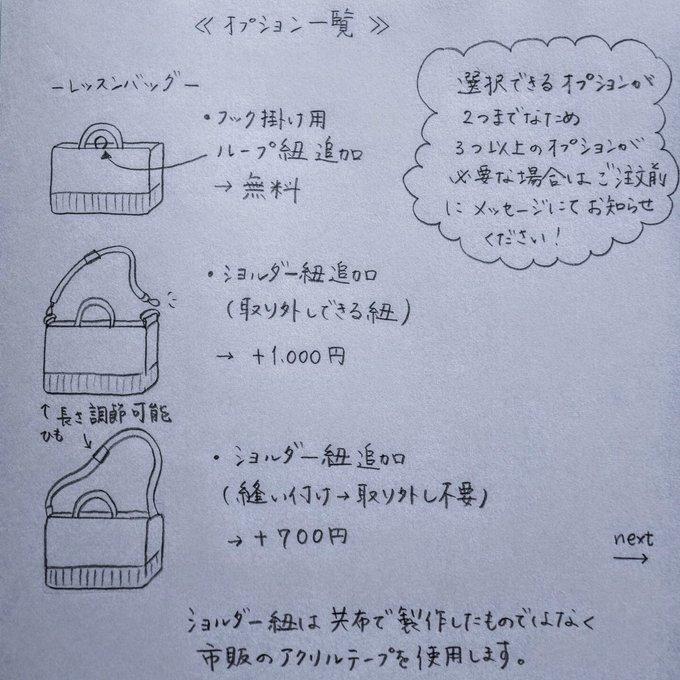 ≪ オプション一覧 ≫
－レッスンバッグ－
・フック掛け用
ループ紐 追加
→ 無料
選択できるオプションが
2つまでなため
3つ以上のオプションが
必要な場合はご注文前
にメッセージにてお知らせ
ください！
・ショルダー紐追加
(取り外しできる紐)
→ +1.000円
↑長さ調節可能
ひも
・ショルダー紐追加
(縫い付け→取り外し不要)
→ +700円
next
→
ショルダー紐は共布で製作したものではなく
市販のアクリルテープを使用します。